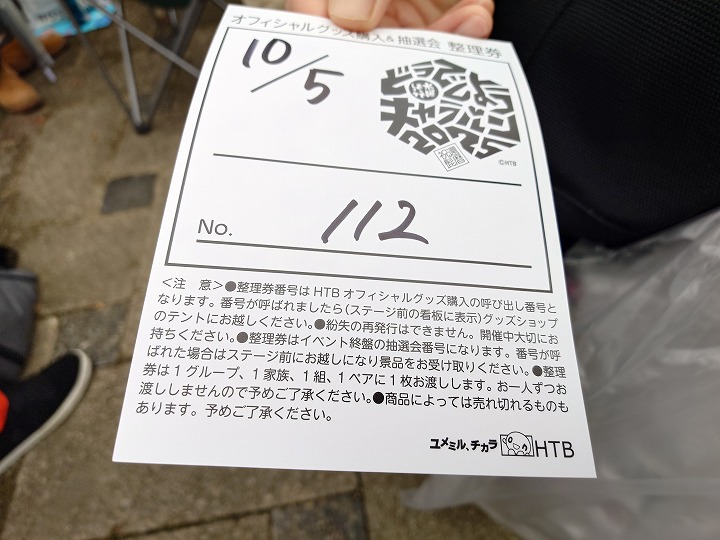 オフィシャルグッズ購入&抽選会 整理券
10/5
キャラバン
2025
祝開局
©HTB
No. 112
<注 意>●整理券番号は HTB オフィシャルグッズ購入の呼び出し番号と
なります。番号が呼ばれましたら(ステージ前の看板に表示)グッズショップ
のテントにお越しください。●紛失の再発行はできません。開催中大切にお
持ちください。●整理券はイベント終盤の抽選会番号になります。番号が呼
ばれた場合はステージ前にお越しになり景品をお受け取りください。●整理
券は1グループ、1家族、1組、1ペアに1枚お渡しします。お一人ずつお
渡ししませんので予めご了承ください。●商品によっては売れ切れるものも
あります。予めご了承ください。
ユメミル、チカラ HTB